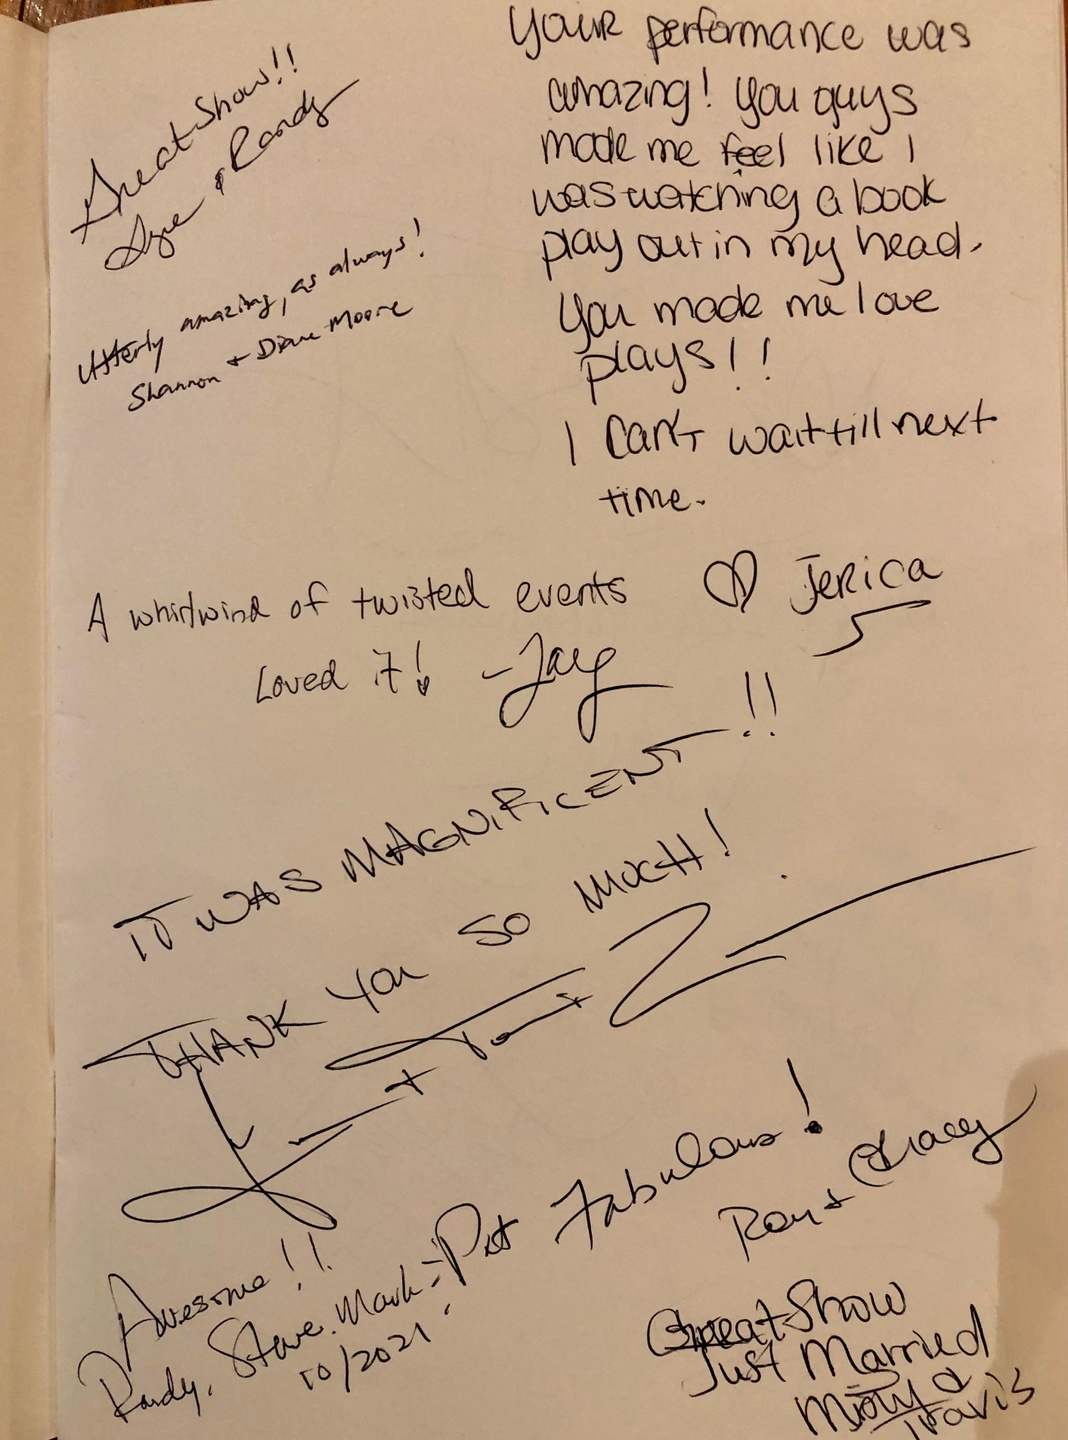 Great Show!!
& Randy
Utterly amazing, as always!
Shannon + Diane Moore
Your performance was
amazing! You guys
made me feel like I
was watching a book
play out in my head.
You made me love
plays!!
I can't wait till next
time.
♡ Jerica
A whirlwind of twisted events
Loved it! -Jay
IT WAS MAGNIFICENT!!
THANK YOU SO MUCH!
+
Fabulous!
Ron + Tracey
Awesome!!
Randy, Steve, Mark & Pat
10/2021
Great Show
Just Married
Misty &
Travis